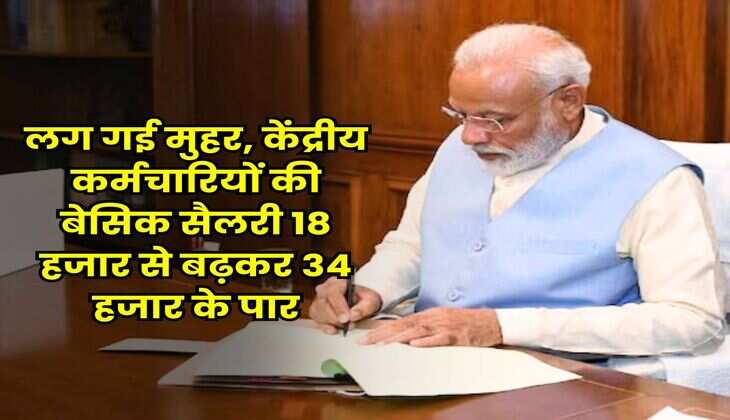 लग गई मुहर, केंद्रीय
कर्मचारियों की
बेसिक सैलरी 18
हजार से बढ़कर 34
हजार के पार